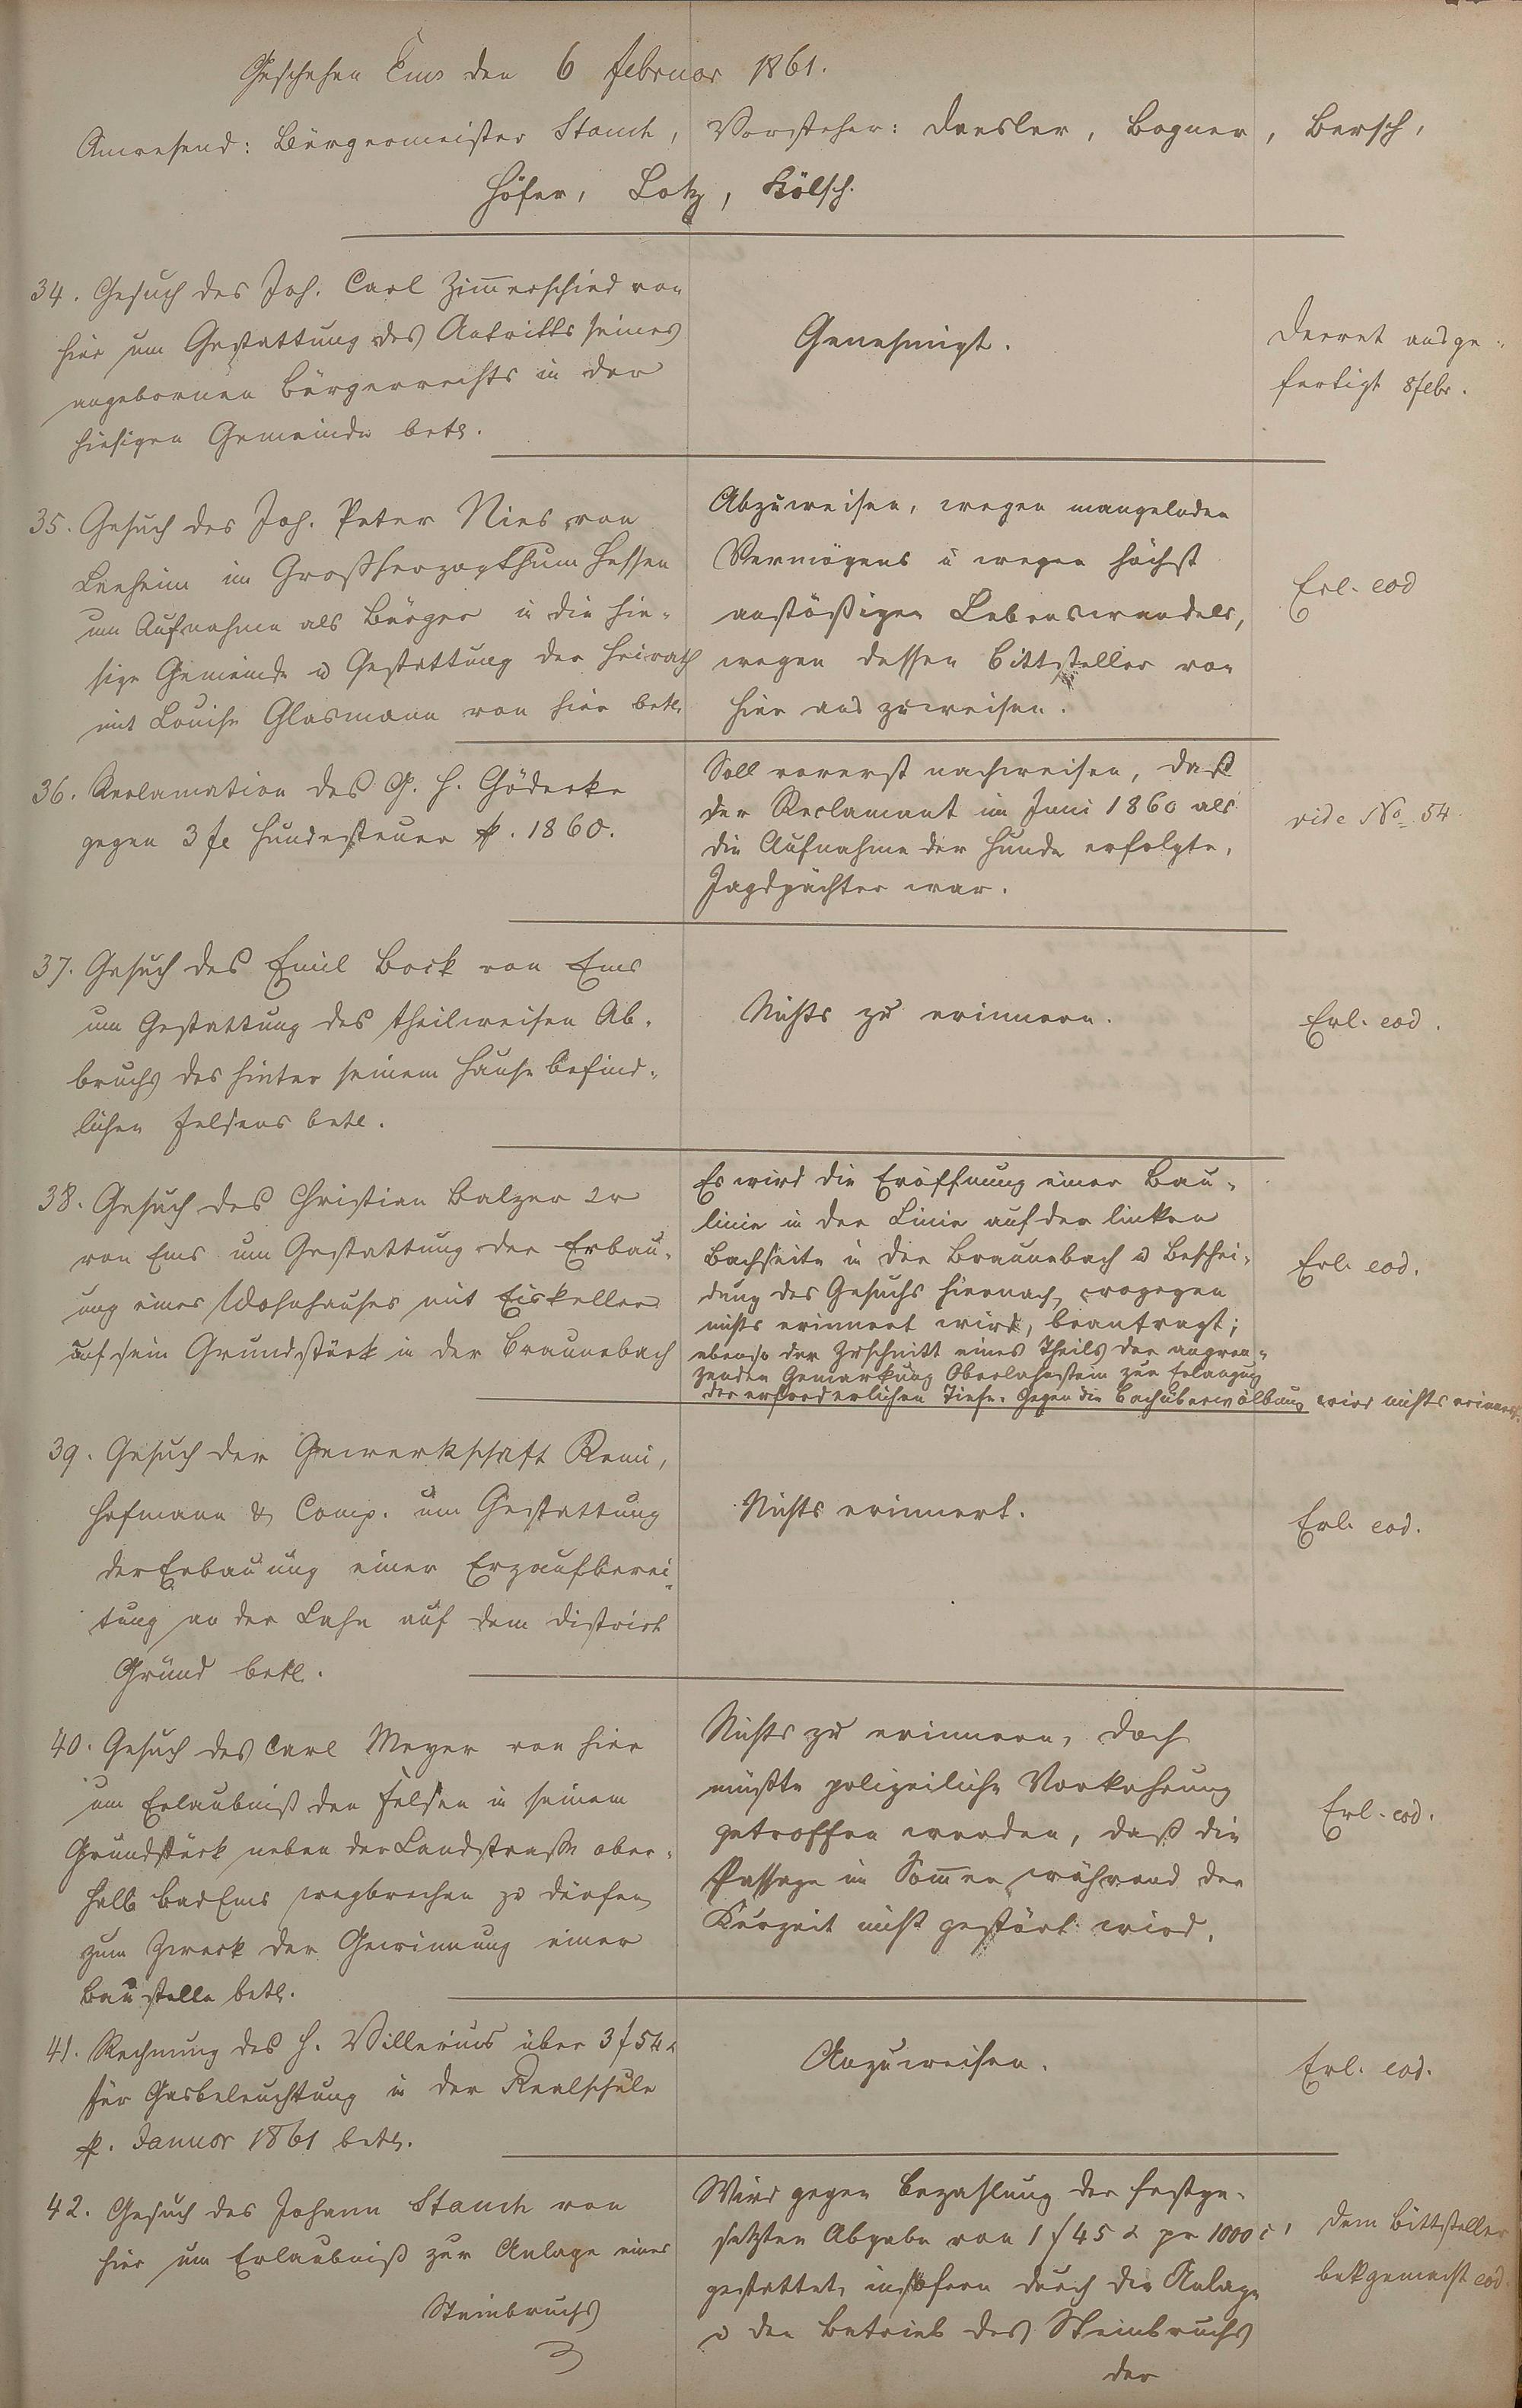 Geschehen Ems den 6 Februar 1861.
Anwesend: Bürgermeister Stauch, Vorsteher: Dresler, Bogner, Bersch,
Höfer, Lotz, Kölsch.
34. Gesuch des Joh. Carl Zimerschied von
hier um Gestattung des Antritts seines
angebornen Bürgerrechts in der
hiesigen Gemeinde betr.
Genehmigt.
Decret ausge-
fertigt 8 Febr.
35. Gesuch des Joh. Peter Nies von
Leeheim im Großherzogthum Hessen
um Aufnahme als Bürger in die hie-
sige Gemeinde u Gestattung der Heirath
mit Louise Glasmann von hier betr.
Abzuweisen, wegen mangelnden
Vermögens u wegen höchst
anstößigen Lebenswandels,
wegen dessen Bittsteller von
hier auszuweisen.
Erl. eod
36. Reclamation des G. H. Gödecke
gegen 3 fl Hundesteuer p. 1860.
Soll vorerst nachweisen, daß
der Reclamant im Juni 1860 als
die Aufnahme der Hunde erfolgte,
Jagdpächter war.
vide No 54
37. Gesuch des Emil Bock von Ems
um Gestattung des theilweisen Ab-
bruchs des hinter seinem Hause befind-
lichen Felsens betr.
Nichts zu erinnern.
Erl. eod.
38. Gesuch des Christian Balzer 2r
von Ems um Gestattung der Erbau-
ung eines Wohnhauses mit Eiskeller
auf sein Grundstück in der Braunebach
Es wird die Eröffnung einer Bau-
linie in der Linie auf der linken
Bachseite in der Braunebach u Beschei-
dung des Gesuchs hiernach, wogegen
nichts erinnert wird, beantragt;
ebenso der Zuschnitt eines Theils der angren-
zenden Gemarkung Oberlahnstein zur Erlangung
der erforderlichen Tiefe. Gegen die Bachüberwölbung wird nichts erinnert.
Erl. eod.
39. Gesuch der Gewerkschaft Remi,
Hofmann & Comp. um Gestattung
der Erbauung einer Erzaufberei-
tung an der Lahn auf dem District
Gründ betr.
Nichts erinnert.
Erl. eod.
40. Gesuch des Carl Meyer von hier
um Erlaubniß den Felsen in seinem
Grundstück neben der Landstraße ober-
halb Bad Ems wegbrechen zu dürfen
zum Zweck der Gewinnung einer
Baustelle betr.
Nichts zu erinnern, doch
müßte polizeiliche Vorkehrung
getroffen werden, daß die
Passage im Somer während der
Kurzeit nicht gestört wird.
Erl. eod.
41. Rechnung des H. Villerius über 3 f 54 x
für Gasbeleuchtung in der Realschule
p. Januar 1861 betr.
Anzuweisen.
Erl. eod.
42. Gesuch des Johann Stauch von
hier um Erlaubniß zur Anlage eines
Steinbruchs
Wird gegen Bezahlung der festge-
setzten Abgabe von 1 f 45 x pr 1000 c'
gestattet, insofern durch die Anlage
u den Betrieb des Steinbruchs
der
Dem Bittsteller
bekgemacht eod.